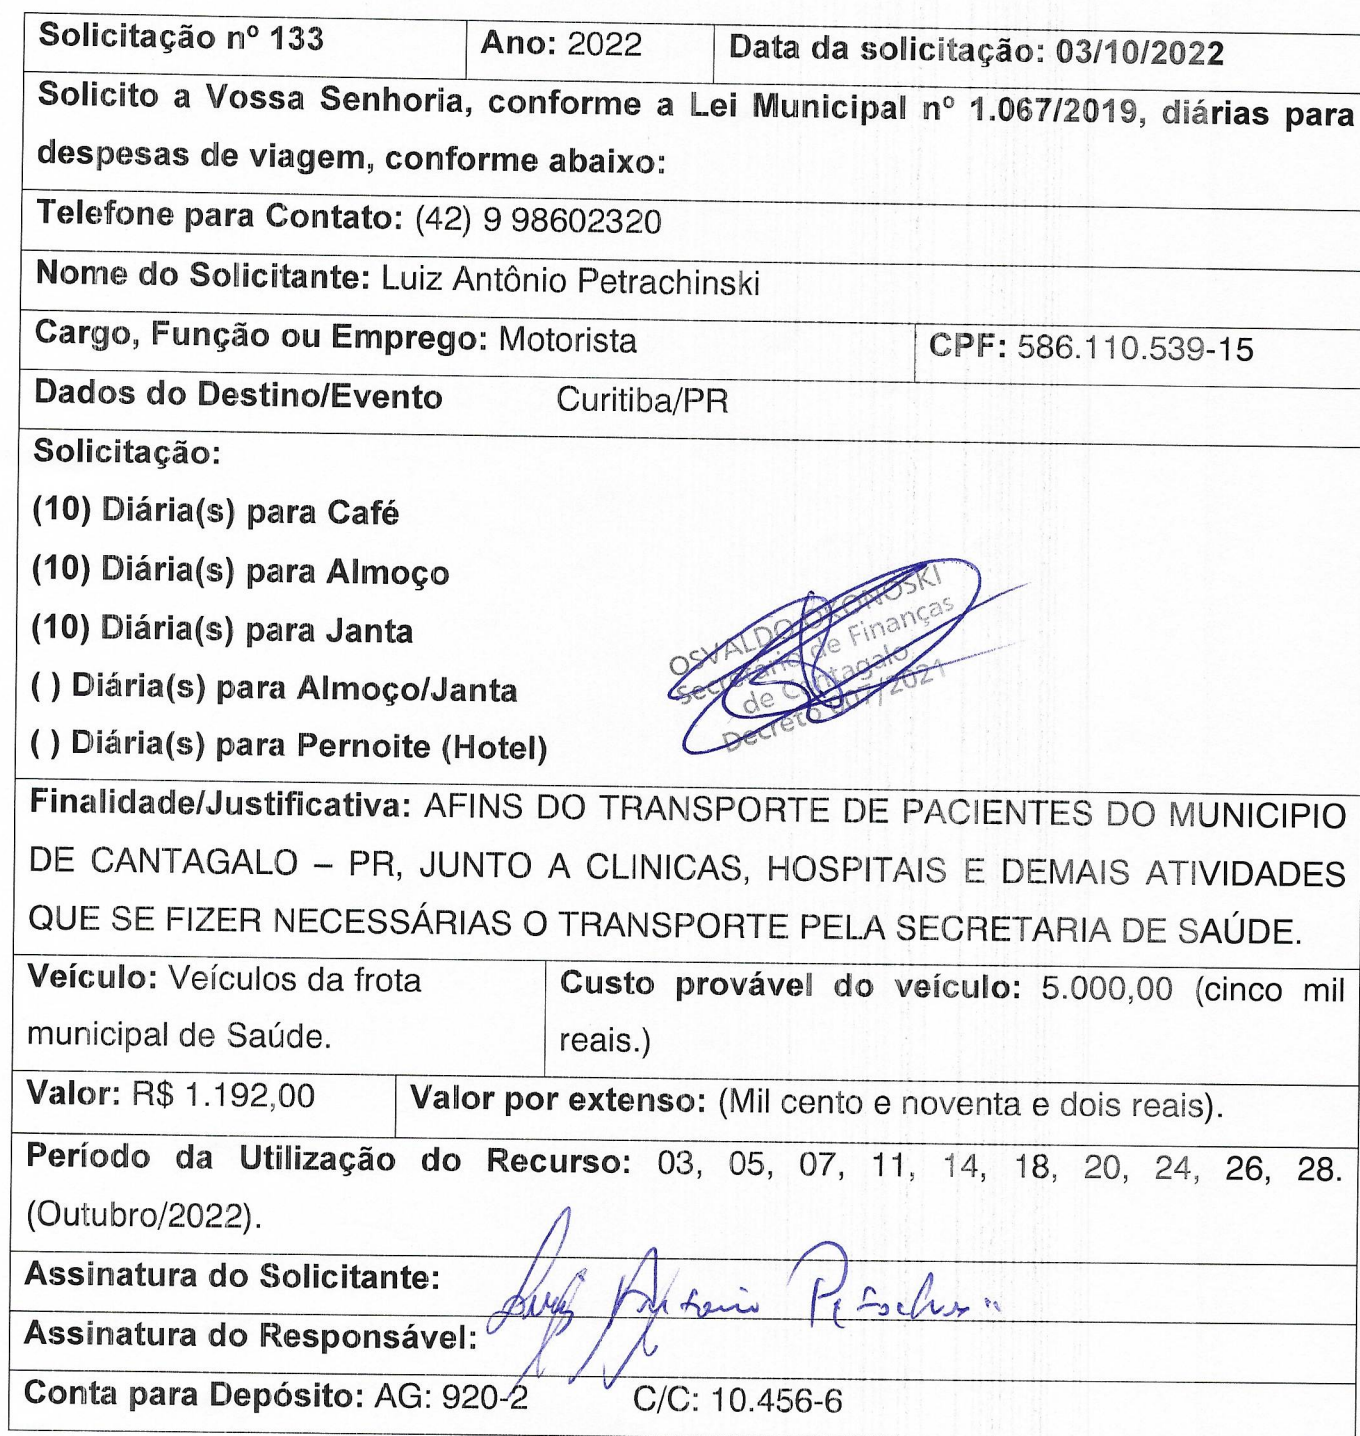 Solicitação nº 133 Ano: 2022 Data da solicitação: 03/10/2022
Solicito a Vossa Senhoria, conforme a Lei Municipal nº 1.067/2019, diárias para
despesas de viagem, conforme abaixo:
Telefone para Contato: (42) 9 98602320
Nome do Solicitante: Luiz Antônio Petrachinski
Cargo, Função ou Emprego: Motorista CPF: 586.110.539-15
Dados do Destino/Evento Curitiba/PR
Solicitação:
(10) Diária(s) para Café
(10) Diária(s) para Almoço
(10) Diária(s) para Janta
( ) Diária(s) para Almoço/Janta
( ) Diária(s) para Pernoite (Hotel)
OSVALDO OKONOSKI
Secretário de Finanças
de Cantagalo
Decreto 007/2021
Finalidade/Justificativa: AFINS DO TRANSPORTE DE PACIENTES DO MUNICIPIO
DE CANTAGALO – PR, JUNTO A CLINICAS, HOSPITAIS E DEMAIS ATIVIDADES
QUE SE FIZER NECESSÁRIAS O TRANSPORTE PELA SECRETARIA DE SAÚDE.
Veículo: Veículos da frota
municipal de Saúde.
Custo provável do veículo: 5.000,00 (cinco mil
reais.)
Valor: R$ 1.192,00 Valor por extenso: (Mil cento e noventa e dois reais).
Período da Utilização do Recurso: 03, 05, 07, 11, 14, 18, 20, 24, 26, 28.
(Outubro/2022).
Assinatura do Solicitante:
Luiz Antonio
Assinatura do Responsável:
Conta para Depósito: AG: 920-2 C/C: 10.456-6